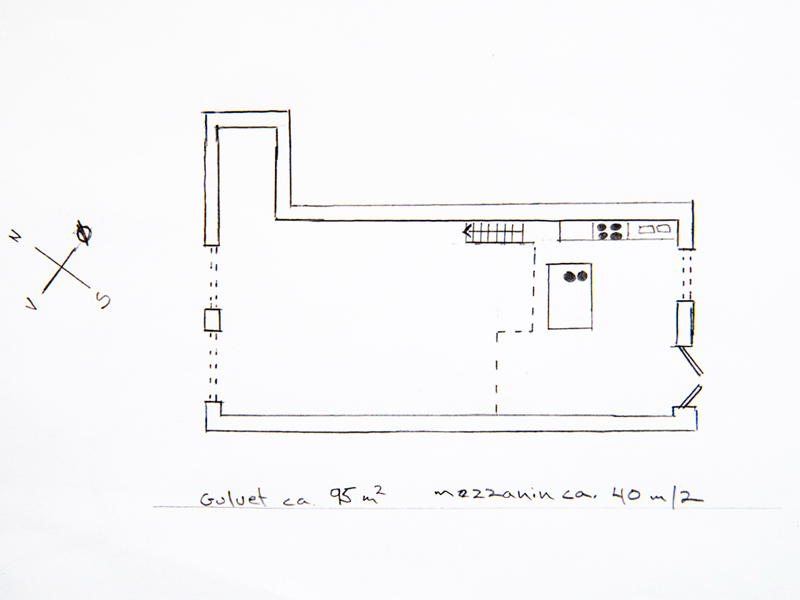 N
Ø
V
S
Gulvet ca. 95 m² mezzanin ca. 40 m/2